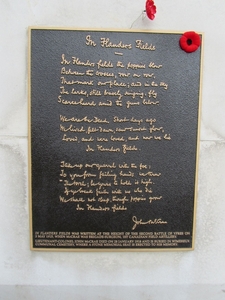 In Flanders Fields
In Flanders fields the poppies blow
Between the crosses, row on row
That mark our place; and in the sky
The larks, still bravely singing, fly
Scarce heard amid the guns below
We are the Dead. Short days ago
We lived, felt dawn, saw sunset glow,
Loved, and were loved, and now we lie
In Flanders fields
Take up our quarrel with the foe:
To you from failing hands we throw
The torch; be yours to hold it high.
If ye break faith with us who die
We shall not sleep, though poppies grow
In Flanders fields
John McCrae
IN FLANDERS FIELDS WAS WRITTEN AT THE